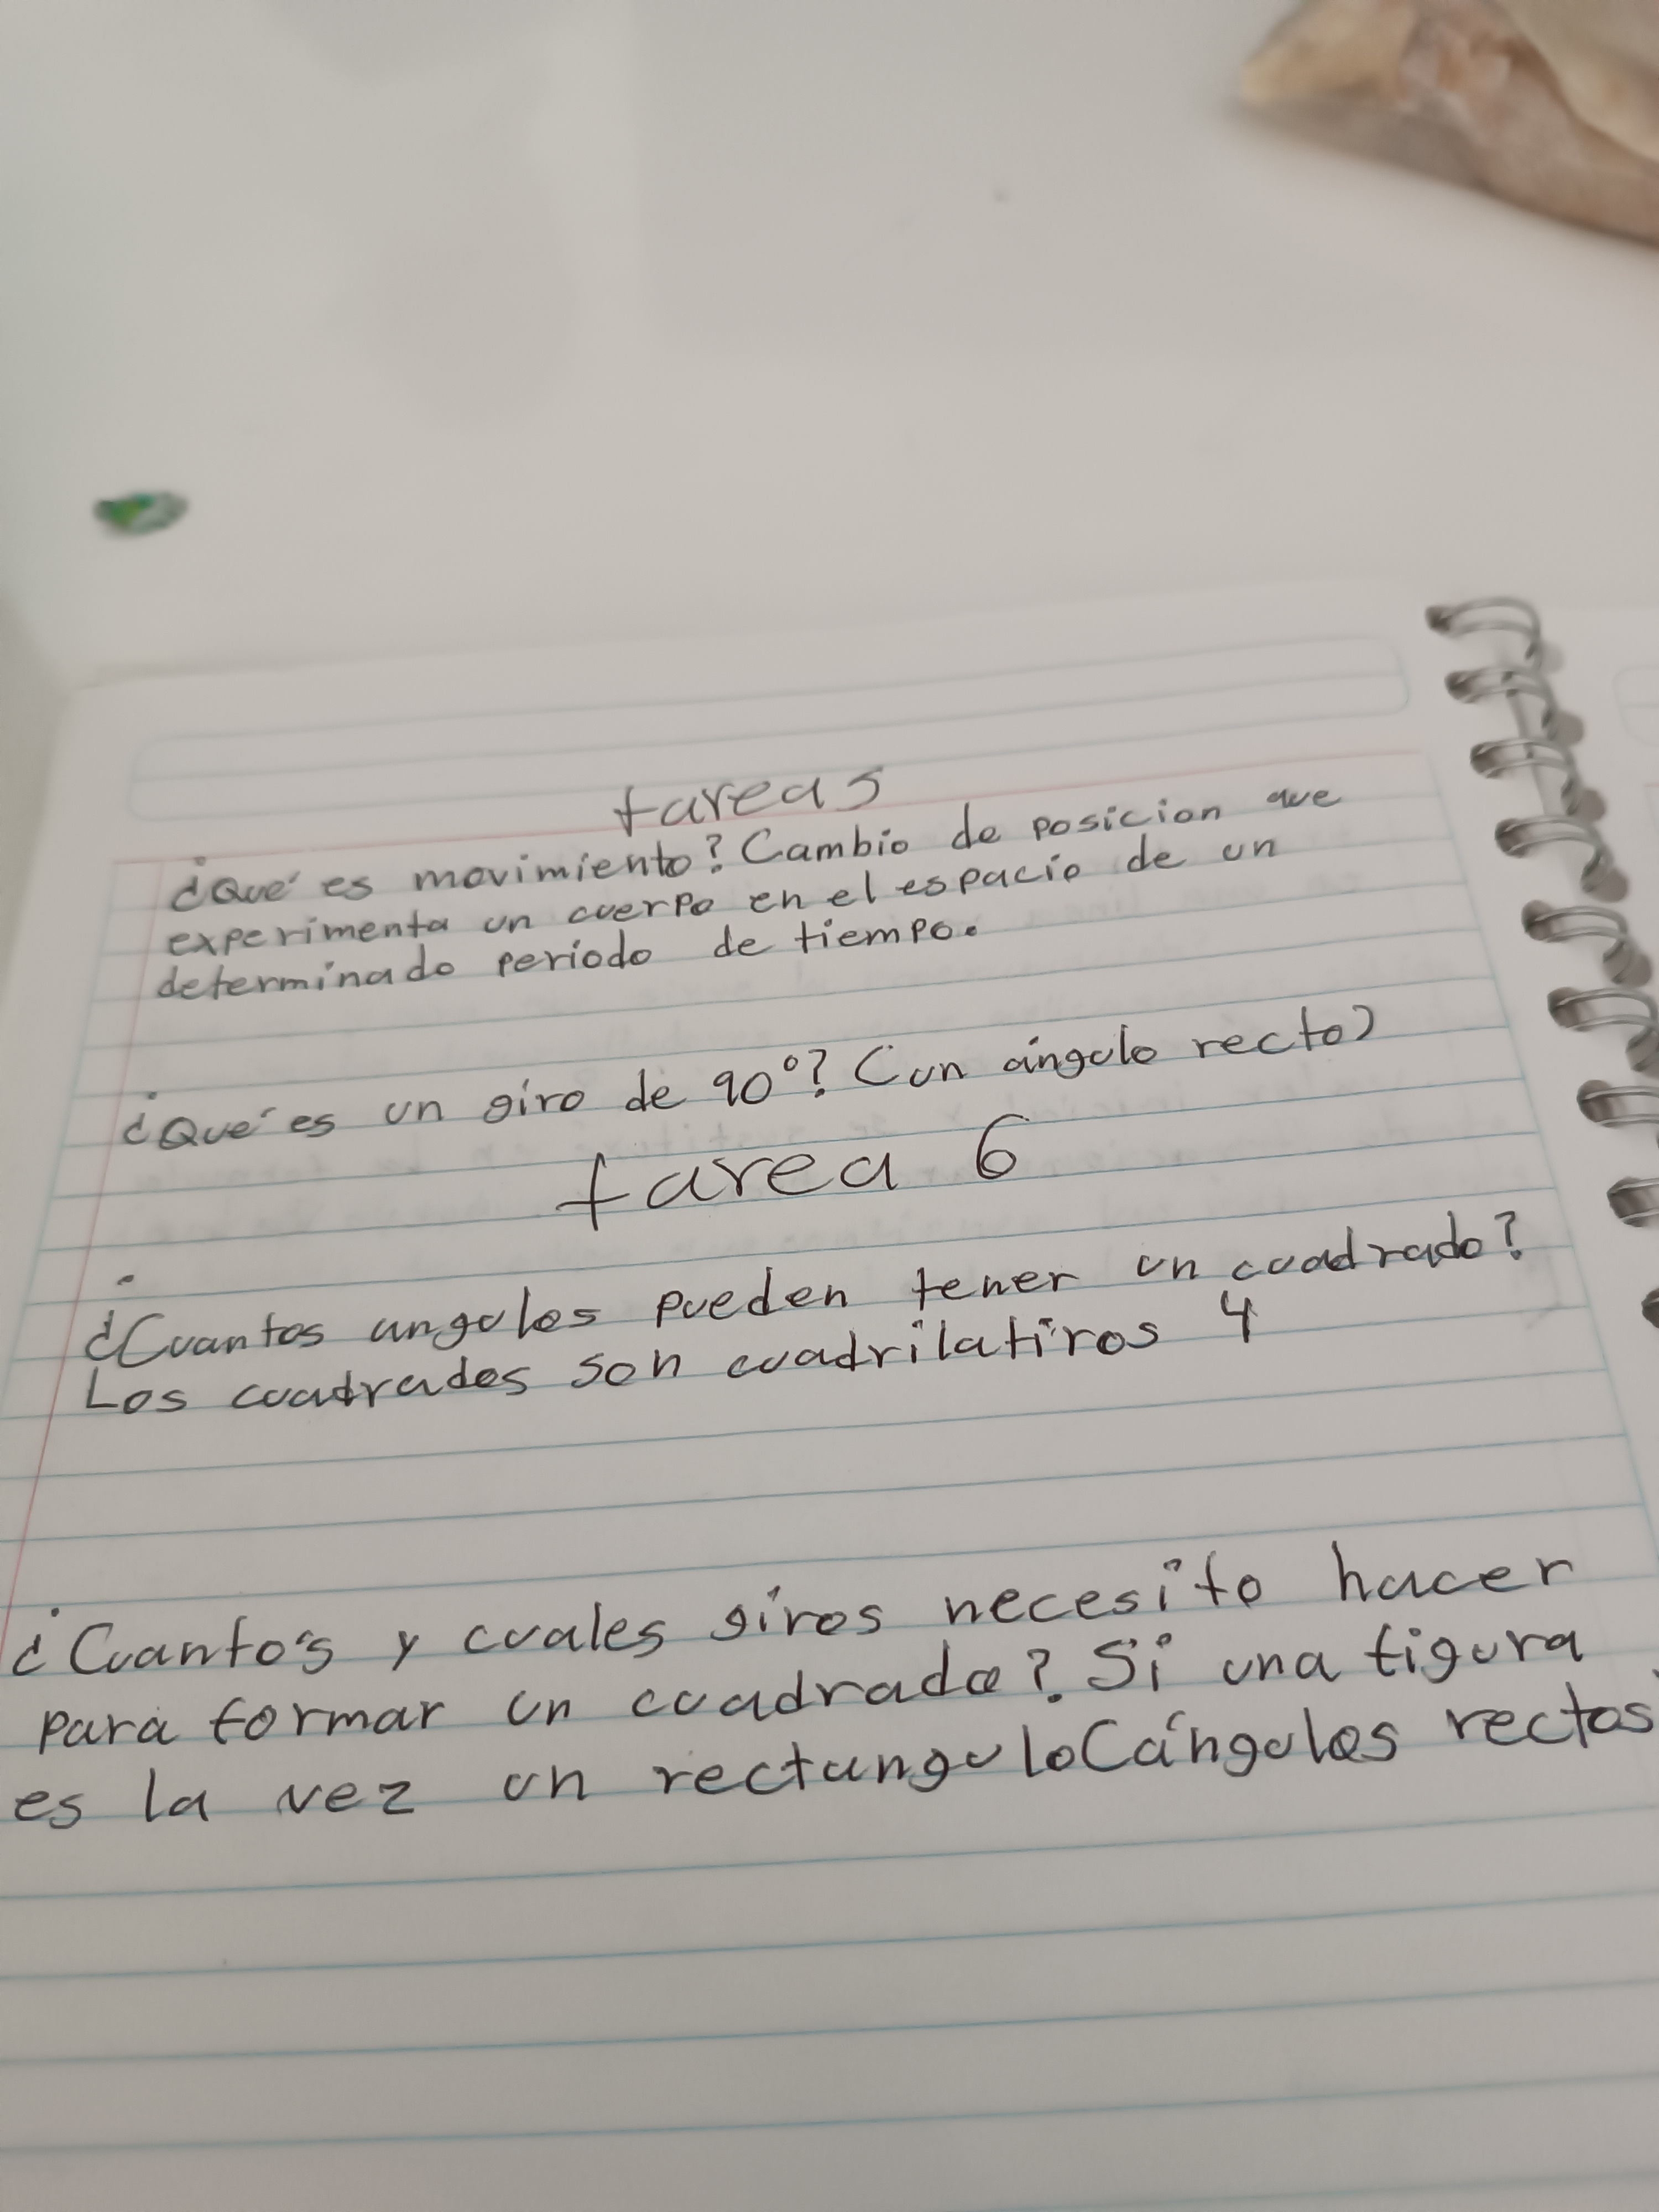 tareas
¿Qué es movimiento? Cambio de posicion que
experimenta un cuerpo en el espacio de un
determinado periodo de tiempo.
¿Qué es un giro de 90°? (un ángulo recto)
tarea 6
¿Cuantos angulos pueden tener un cuadrado?
Los cuadrados son cuadrilatiros 4
¿Cuantos y cuales giros necesito hacer
para formar un cuadrado? Si una figura
es la vez un rectangulo(ángulos rectos